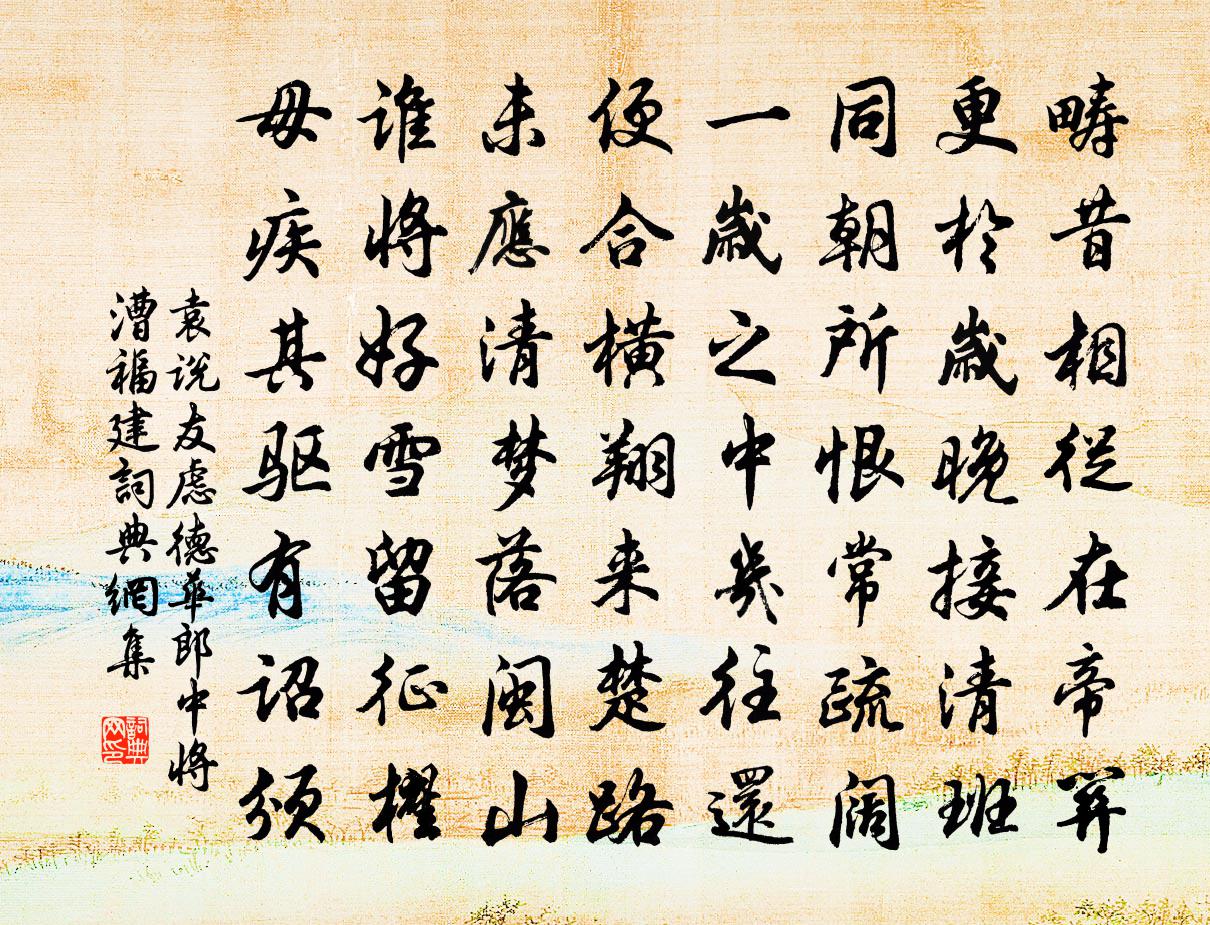 疇昔相從在帝關
更於歲晚接清班
同朝所恨常疏闊
一歲之中幾往還
便合橫翔來楚路
未應清夢落閩山
誰將好雪留征櫂
毋疾其驅有詔頒
袁說友慮德華郎中將
漕福建詞典網集
詞典網印